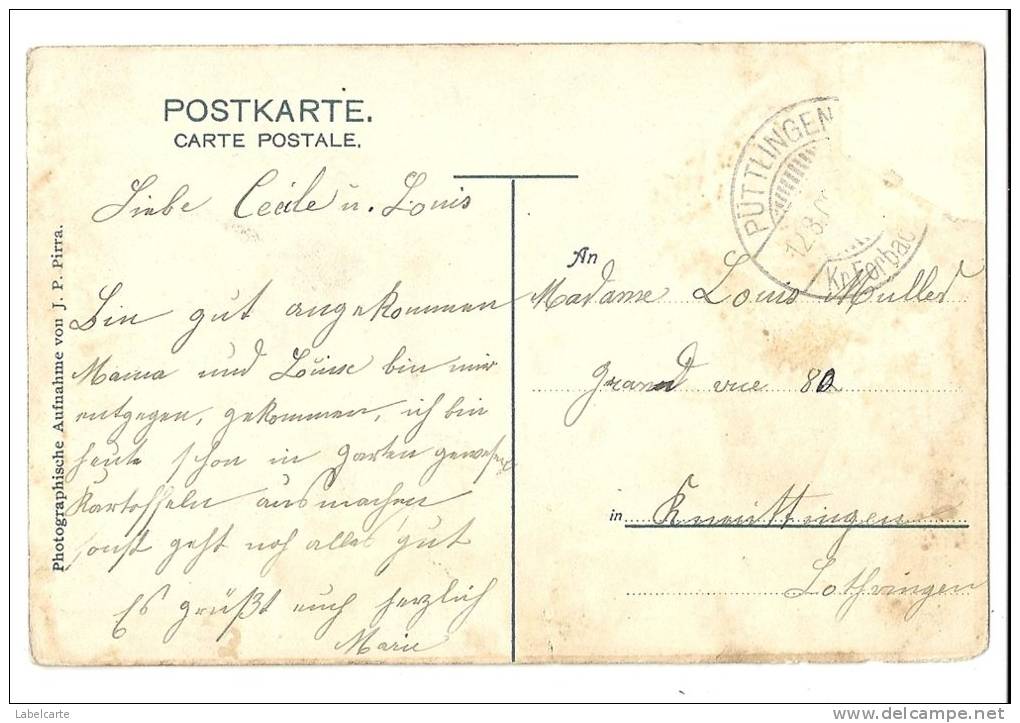 POSTKARTE.
CARTE POSTALE.
Photographische Aufnahme von J. P. Pirra.
Liebe Cecile u. Louis
Bin gut angekommen
Mama und Louise bin mir
entgegen, gekommen, ich bin
heute schon in Garten gewesen
Kartoffeln ausmachen
sonst geht noch alles gut
Es grüßt euch herzlich
Marie
PÜTTLINGEN
12.8.
Kr. Forbac
An
Madame Louis Muller
Grand rue 82
in Kneuttingen
Lothringen
Labelcarte
http://www.delcampe.net